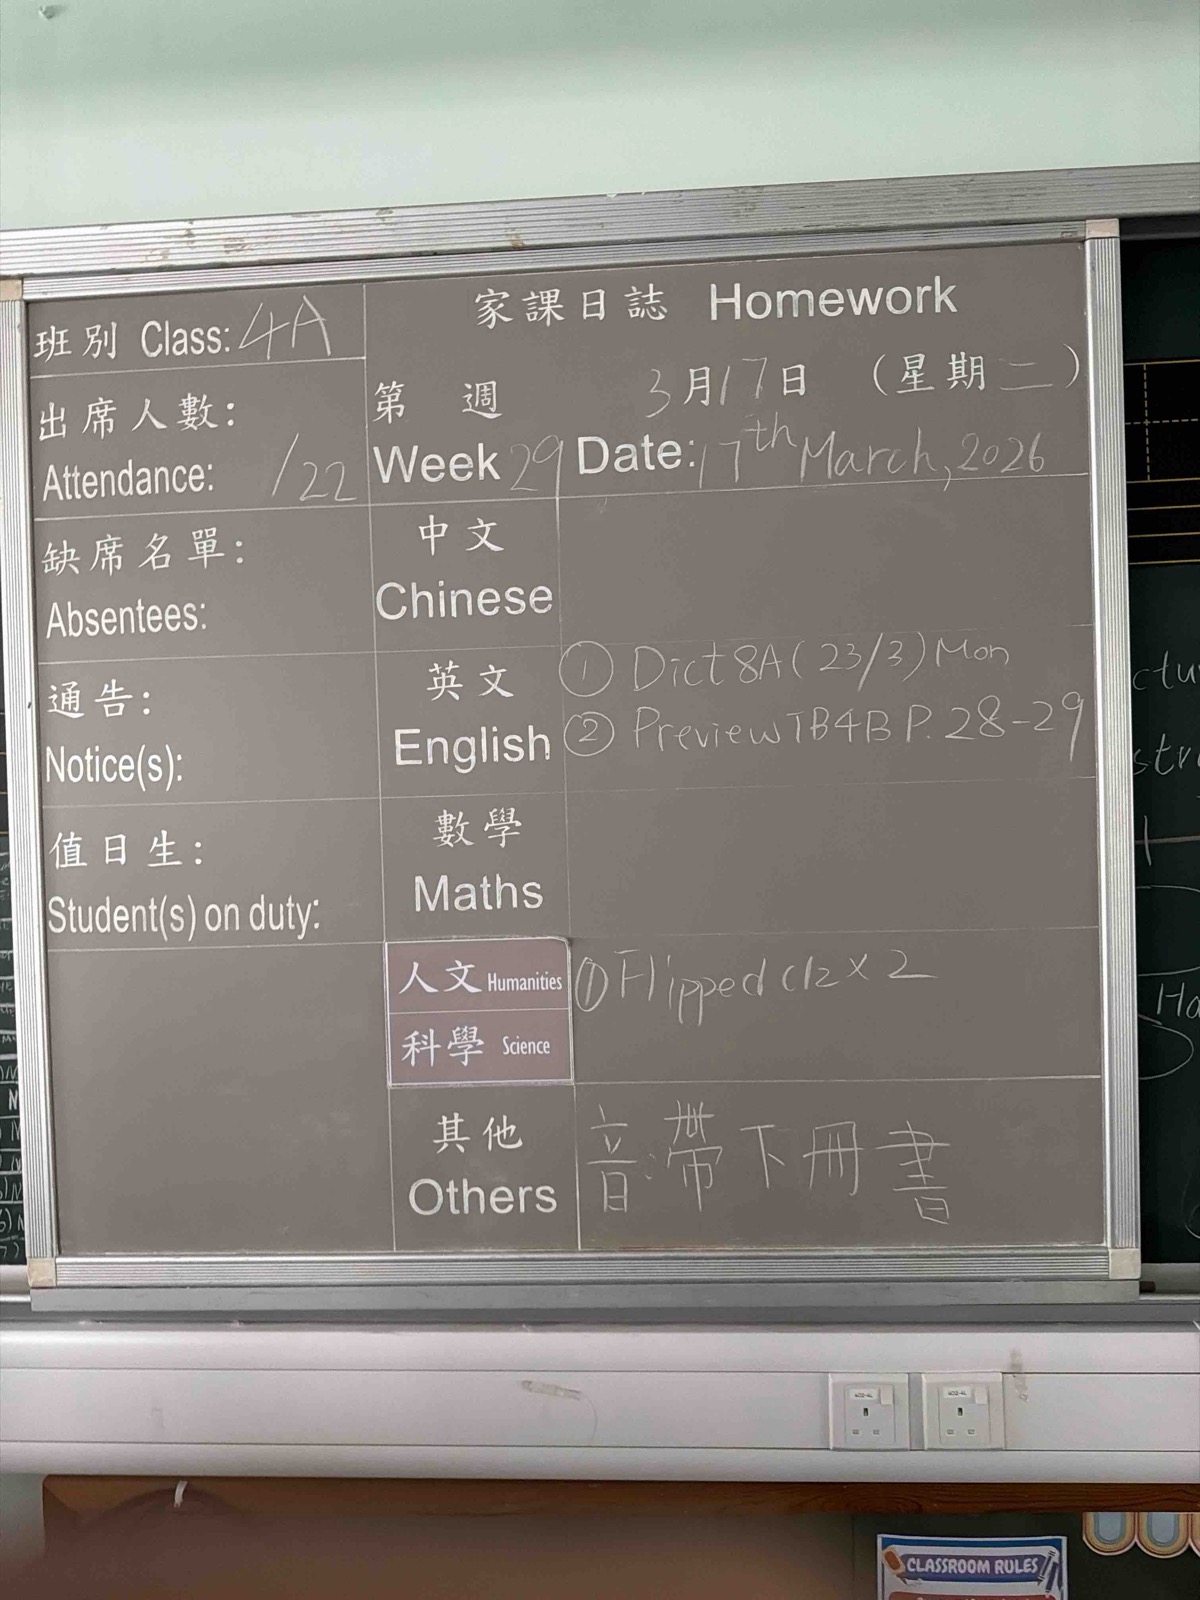 班別 Class: 4A
出席人數:
Attendance: /22
缺席名單:
Absentees:
通告:
Notice(s):
值日生:
Student(s) on duty:
家課日誌 Homework
第 週 3月17日 (星期二)
Week 29 Date: 17th March, 2026
中文
Chinese
英文
English
① Dict 8A (23/3) Mon
② Preview TB4B P. 28-29
數學
Maths
人文 Humanities
科學 Science
① Flipped
x 2
其他
Others
音:帶下冊書
CLASSROOM RULES